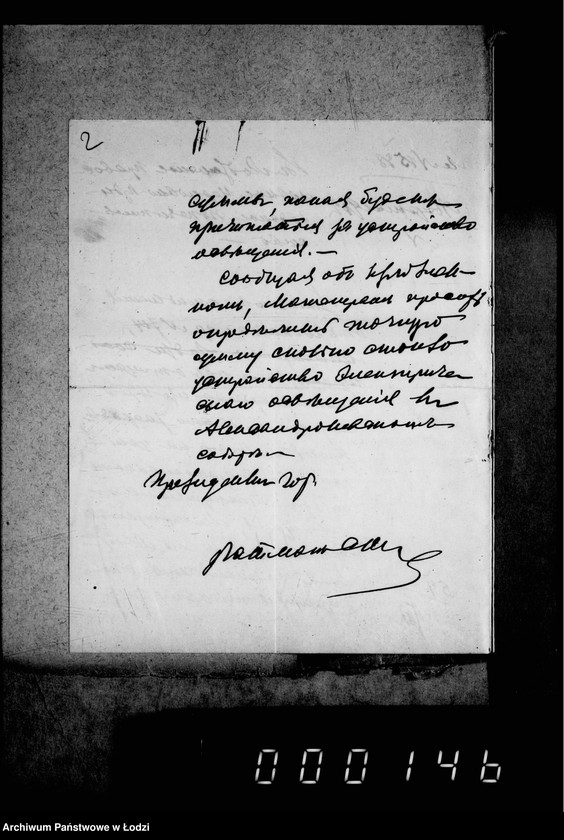 2
суммы, какая будетъ
причитаться за устройство
освѣщенія. —
Сообщая объ
Магистратъ проситъ
опредѣлить точную
сумму сколько стоило
устройство электриче-
скаго освѣщенія въ
Александровскомъ
соборѣ. —
Президентъ гор.
000146
Archiwum Państwowe w Łodzi